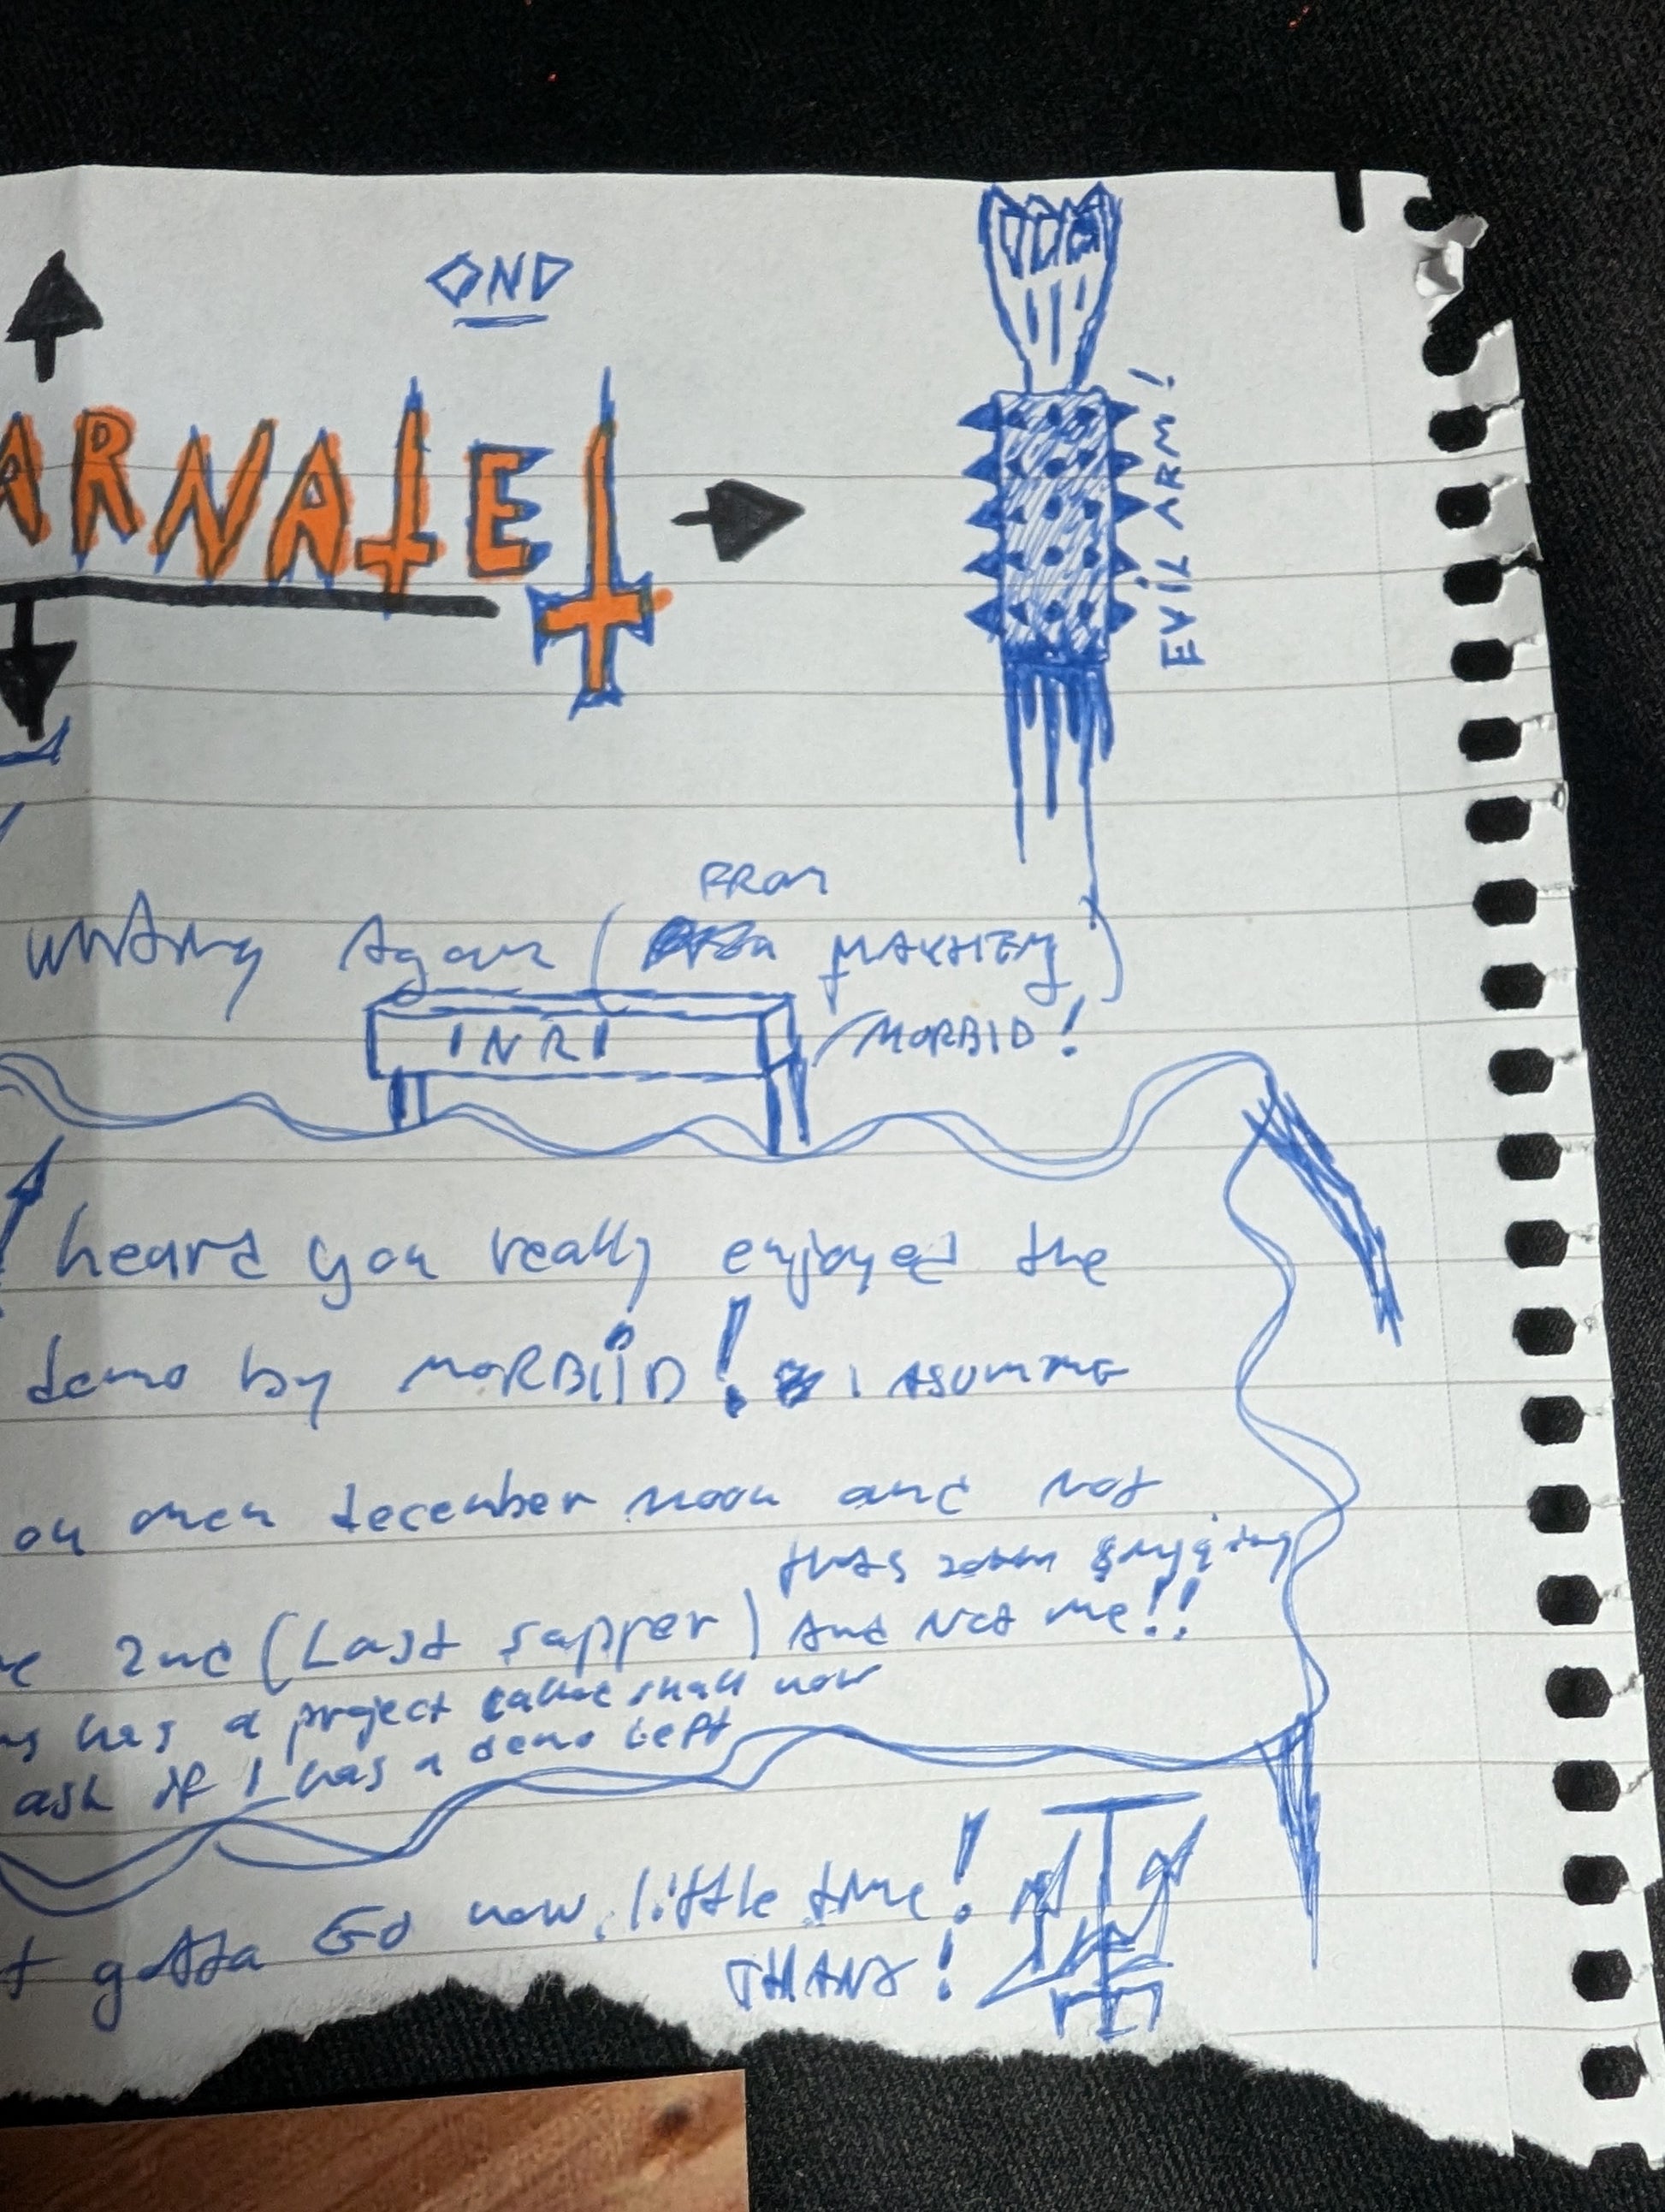 OND
ARNATE
EVIL ARM!
FROM
writing Again ( MAYHEM)
/MORBID!
INRI
heard you really enjoyed the
demo by MORBiiD! I ASUMME
on december moon and Not
thats
2nd (Last supper) And Not me!!
has a project called shall now
ask if I has a demo left
gotta Go now, little time!
THANX!